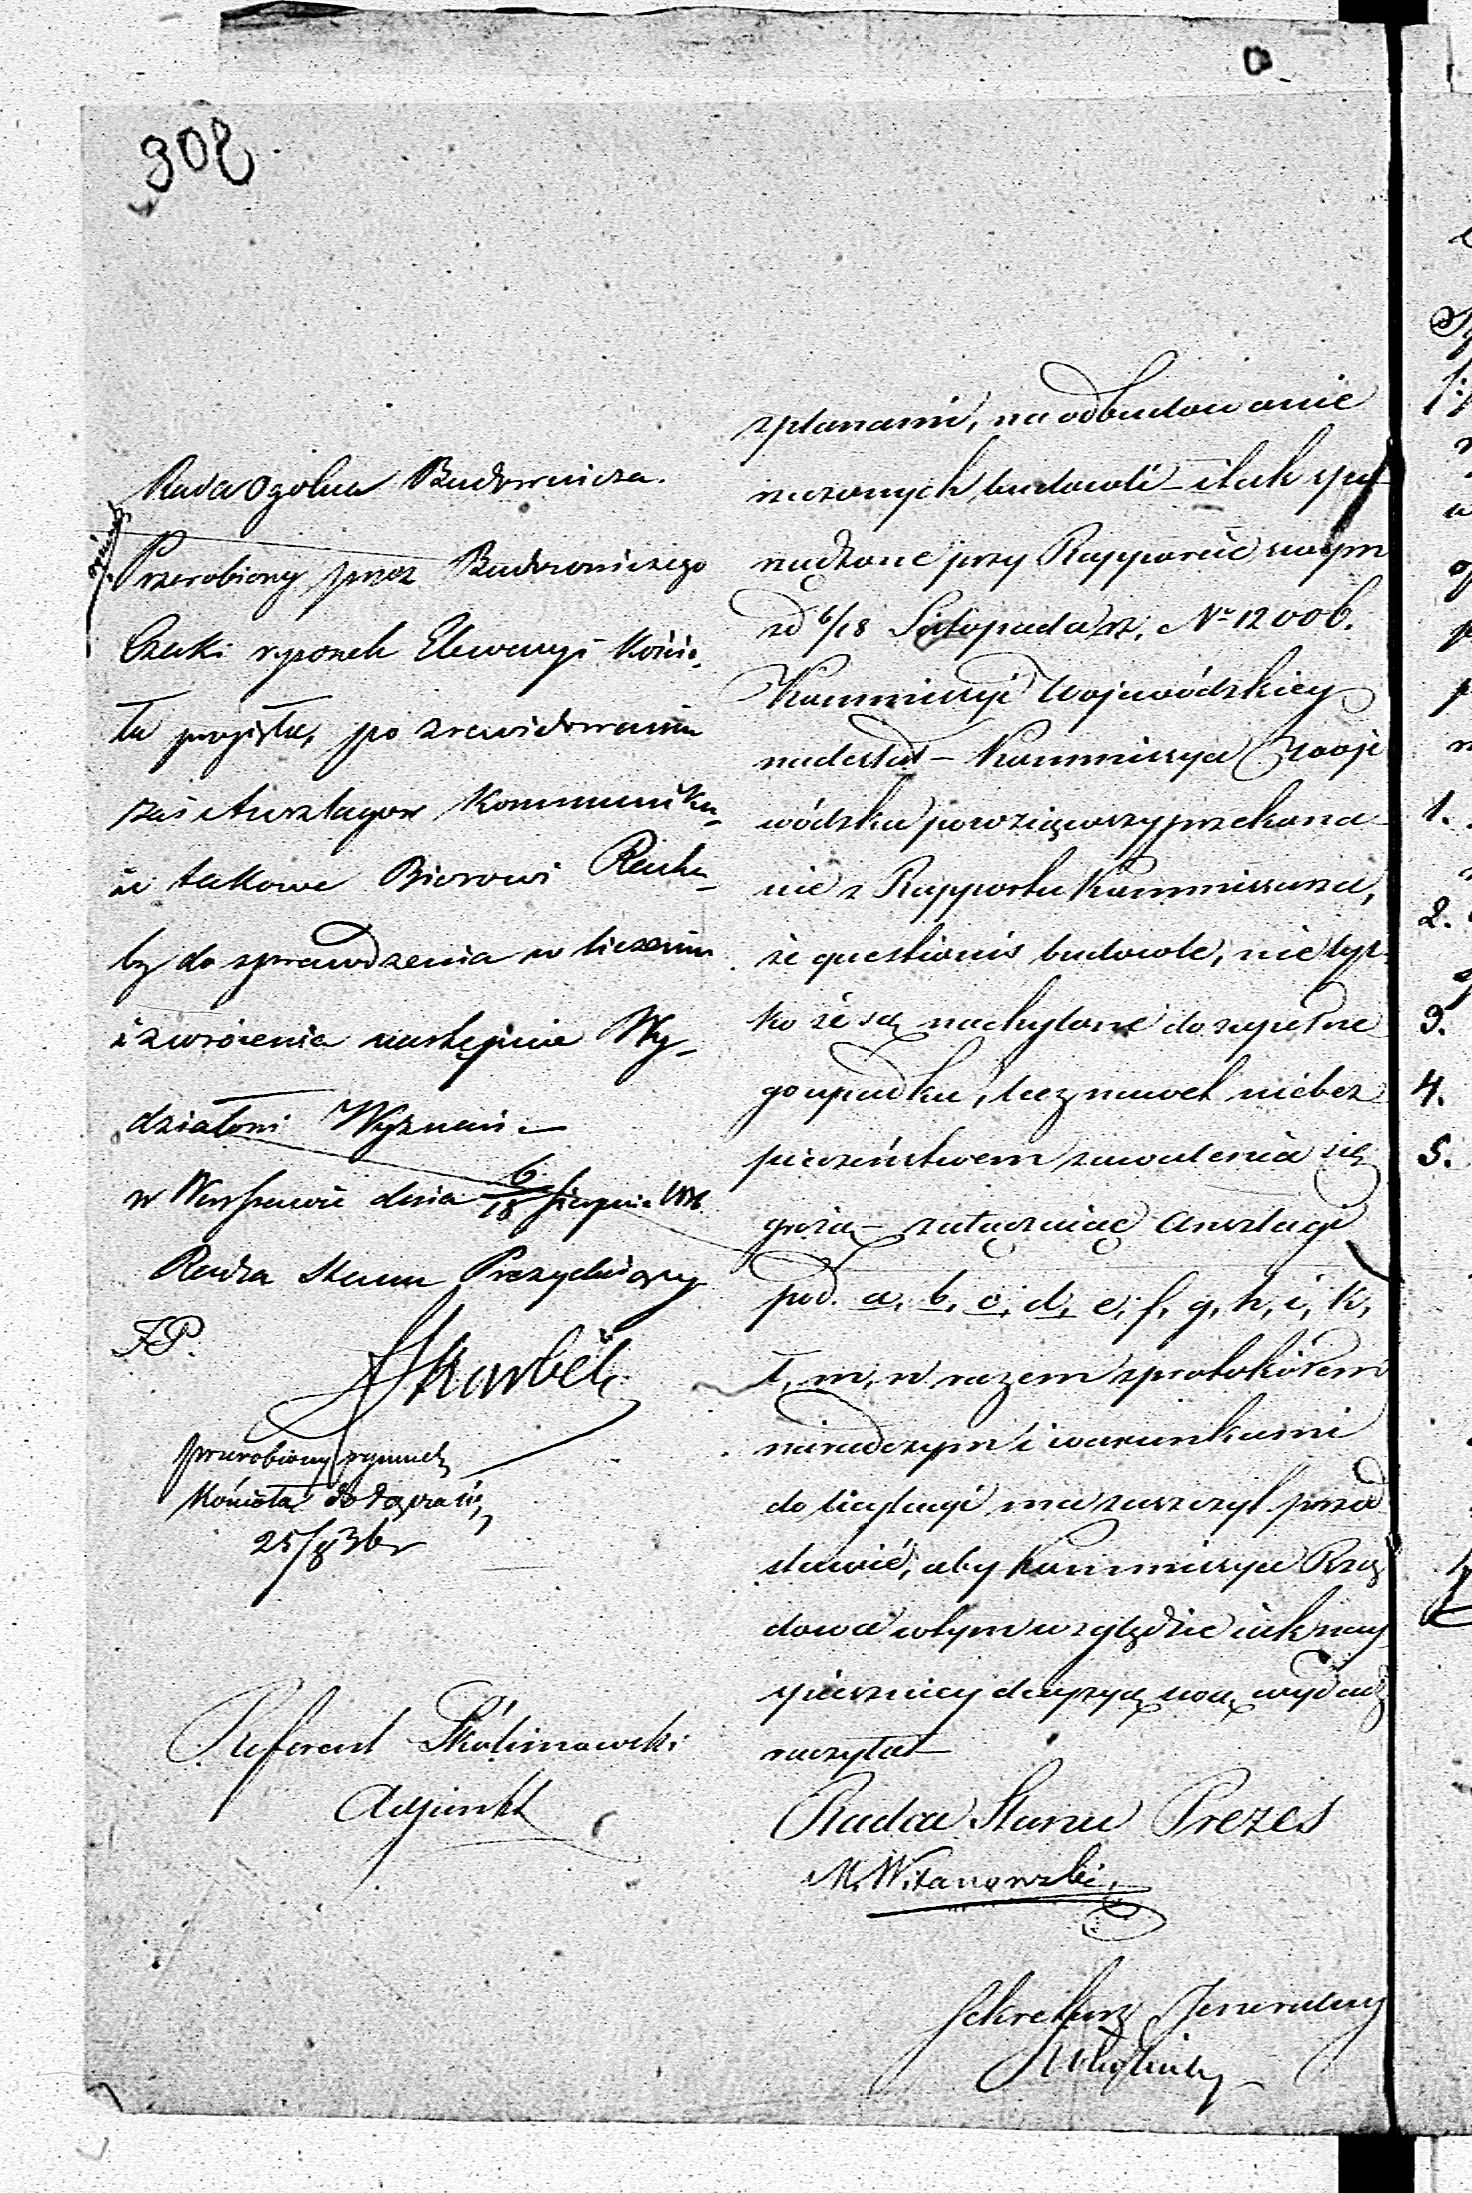 308
Rada Ogólna Budownicza.
Przerobiony przez Budowniczego
rysonek Elewacyi Kościo,
ła przyięła, po zrewidowaniu
zaś Anszlagow Kommuniku,
ie takowe Biorowi Rachu,
by do sprawdzenia w liczeniu
i zwrócenia następnie Wy,
działowi Wyznań –
w Warszawie dnia 6/18 Sierpnia 1836
Radca Stanu Prezyduiący
FP.
Skarbek
przerobiony rysunek
Kościoła do
25/8 36 r
Referent Skolimowski
Adjunkt
z planami, na odbudowanie
rzeczonych budowli – i tak spo
rządzone przy Rapporcie swym
zd 6/18 Listopada rz. No 12006.
Kommissyi Wojewódzkiey
nadesłał – Kommissya Woje
wódzka powziąwszy przekona
nie z Rapportu Kommissarza,
że questionis budowle, nie tyl
ko że są nachylone do zupełne
go upadku, lecz nawet niebez
pieczeństwem zawalenia się
grożą – załączaiąc Anszlagi
pod. a, b, c, d, e, f, g, h, i, k,
l, m, n razem z protokółem
naradczym i warunkami
do licytacyi ma zaszczyt przed
stawić, aby Kommissya Rzą
dowa w tym względzie iak nay
spieszniey decyzyą swą wydać
raczyła –
Radca Stanu Prezes
M. Witanowski
Sekretarz Jeneralny
1.
2.
3.
4.
5.